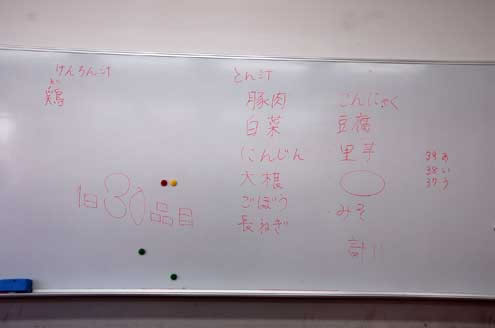 けんちん汁
とり
鶏
とん汁
豚肉
白菜
にんじん
大根
ごぼう
長ねぎ
こんにゃく
豆腐
里芋
みそ
計
1日30品目
39 あ
38 い
37 う